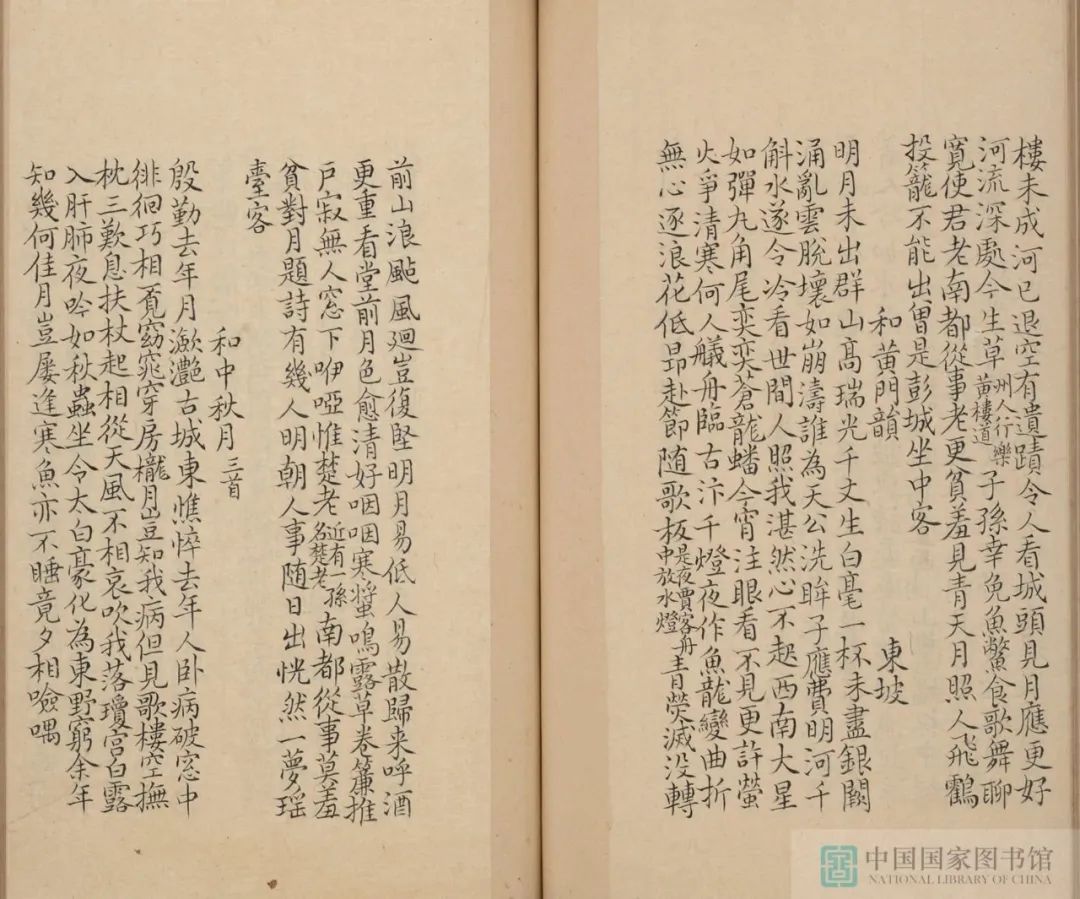 樓未成河已退空有遺蹟令人看城頭見月應更好
河流深處今生草州人行樂黃樓道子孫幸免魚鱉食歌舞聊
寬使君老南都從事老更貧羞見青天月照人飛鶴
投籠不能出曽是彭城坐中客
和黃門韻 東坡
明月未出群山髙瑞光千丈生白毫一杯未盡銀闕
涌亂雲脫壞如崩濤誰為天公洗眸子應費明河千
斛水遂令冷看世間人照我湛然心不起西南大星
如彈丸角尾奕奕蒼龍蟠今宵注眼看不見更許螢
火爭清寒何人艤舟臨古汴千燈夜作魚龍變曲折
無心逐浪花低昂赴節随歌板是夜賈客舟中放水燈青熒滅没轉
前山浪颭風迴豈復堅明月易低人易散歸来呼酒
更重看堂前月色愈清好咽咽寒螿鳴露草卷簾推
戶寂無人窓下咿啞惟楚老近有一孫名楚老南都從事莫羞
貧對月題詩有幾人明朝人事随日出恍然一夢瑶
臺客
和中秋月 三首
殷勤去年月瀲灧古城東憔悴去年人卧病破窓中
徘徊巧相覓窈窕穿房櫳月豈知我病但見歌樓空撫
枕三歎息扶杖起相從天風不相哀吹我落瓊宮白露
入肝肺夜吟如秋蟲坐令太白豪化為東野窮余年
知幾何佳月豈屢逢寒魚亦不睡竟夕相噞喁
中国国家图书馆
NATIONAL LIBRARY OF CHINA